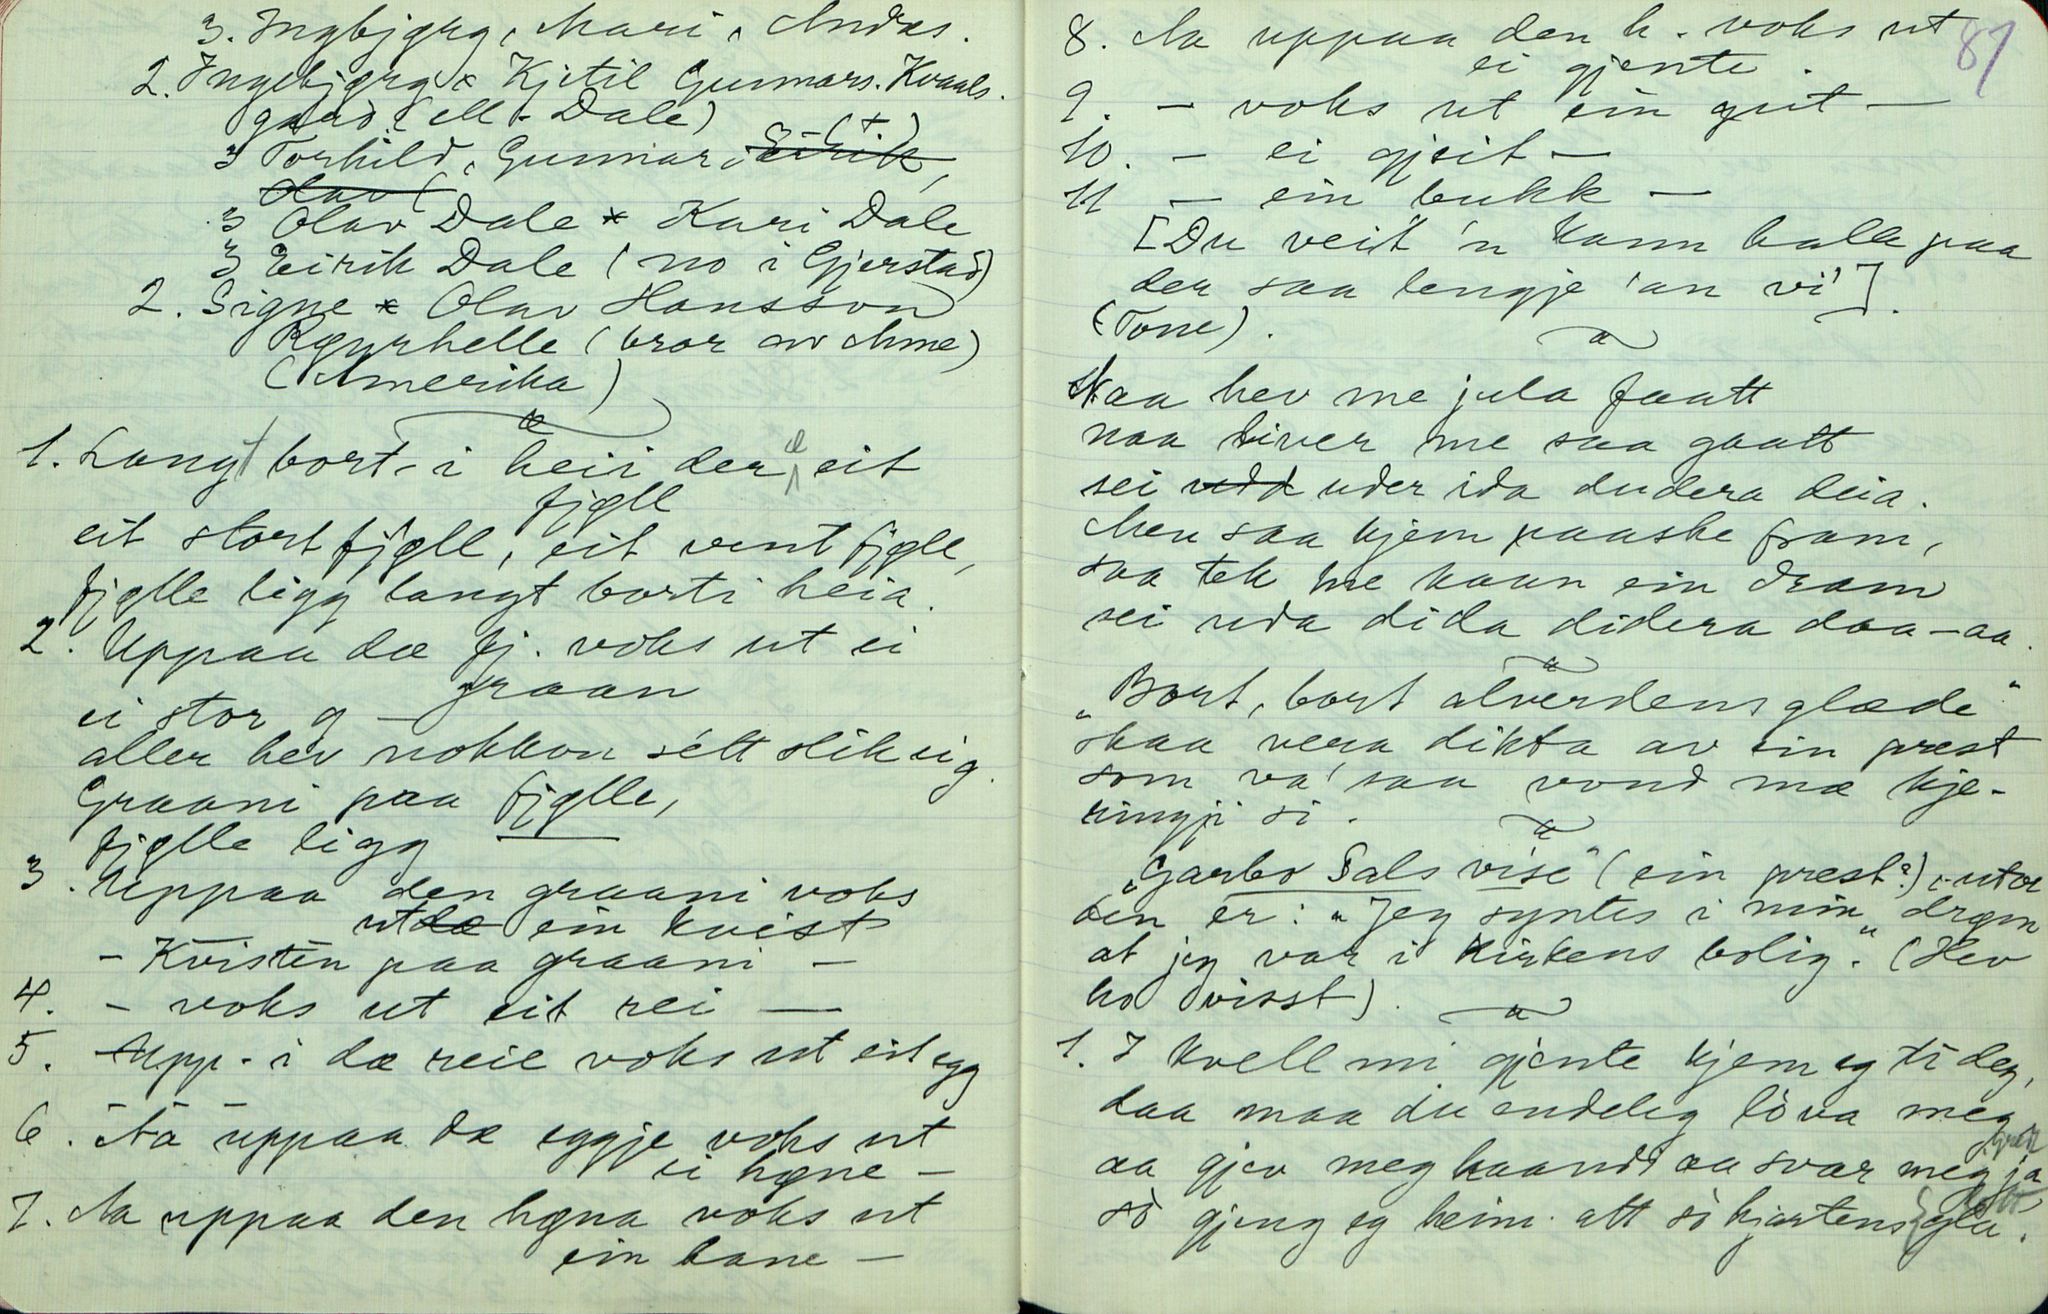 3. Ingbjørg, Mari, Andas.
2. Ingebjørg x Kjetil Gunnars. Kvaals-
gaard (M. Dale)
3 Torhild, Gunnar, Eirik (+),
Olav (
3 Olav Dale x Kari Dale
3 Eirik Dale (no i Gjerstad)
2. Signe x Olav Hansson
Røyrhelle (bror av Ane)
(Amerika)
1. Langt bort i heii der æ eit
fjøll
eit stort fjøll, eit vent fjøll,
fjølle ligg langt borti heia.
2. Uppaa dæ fj. voks ut ei
graan
ei stor g —
aller hev nokkon sétt slik eig
Graani paa fjølle,
fjølle ligg
3. Uppaa den graani voks
ut dæ ein kvist
- Kvisten paa graani —
4. - voks ut eit rei —
5. Upp- i dæ reie voks ut eit egg
6. Aa uppaa dæ eggje voks ut
ei høne —
7. Aa uppaa den høna voks ut
ein hane —
87
8. Aa uppaa den h. voks ut
ei gjente.
9. — voks ut ein gut —
10. — ei gjeit —
11 — ein bukk —
[Du veit 'n kann halle paa
der saa lengje 'an vi'].
(Tone).
Naa hev me jula faatt
naa liver me saa gaatt
sei udd uder ida dudera deia.
Men saa kjem paaske fram,
saa tek me kaan ein dram
sei uda dida didera daa-aa.
"Bort, bort alverdens glæde"
skaa vera dikta av ein prest
som va' saa vond mæ kje-
ringji si.
"Garbo Sals vise" (ein prest?), utor
den er: "Jeg syntes i min drøm
at jeg var i kirkens bolig." (Hev
ho visst).
1. I kvell mi gjente kjem eg ti deg,
daa maa du endeleg lòva meg
aa gjev meg haandi aa svar meg ja
sò gjeng eg heim att sò hjartens gla.